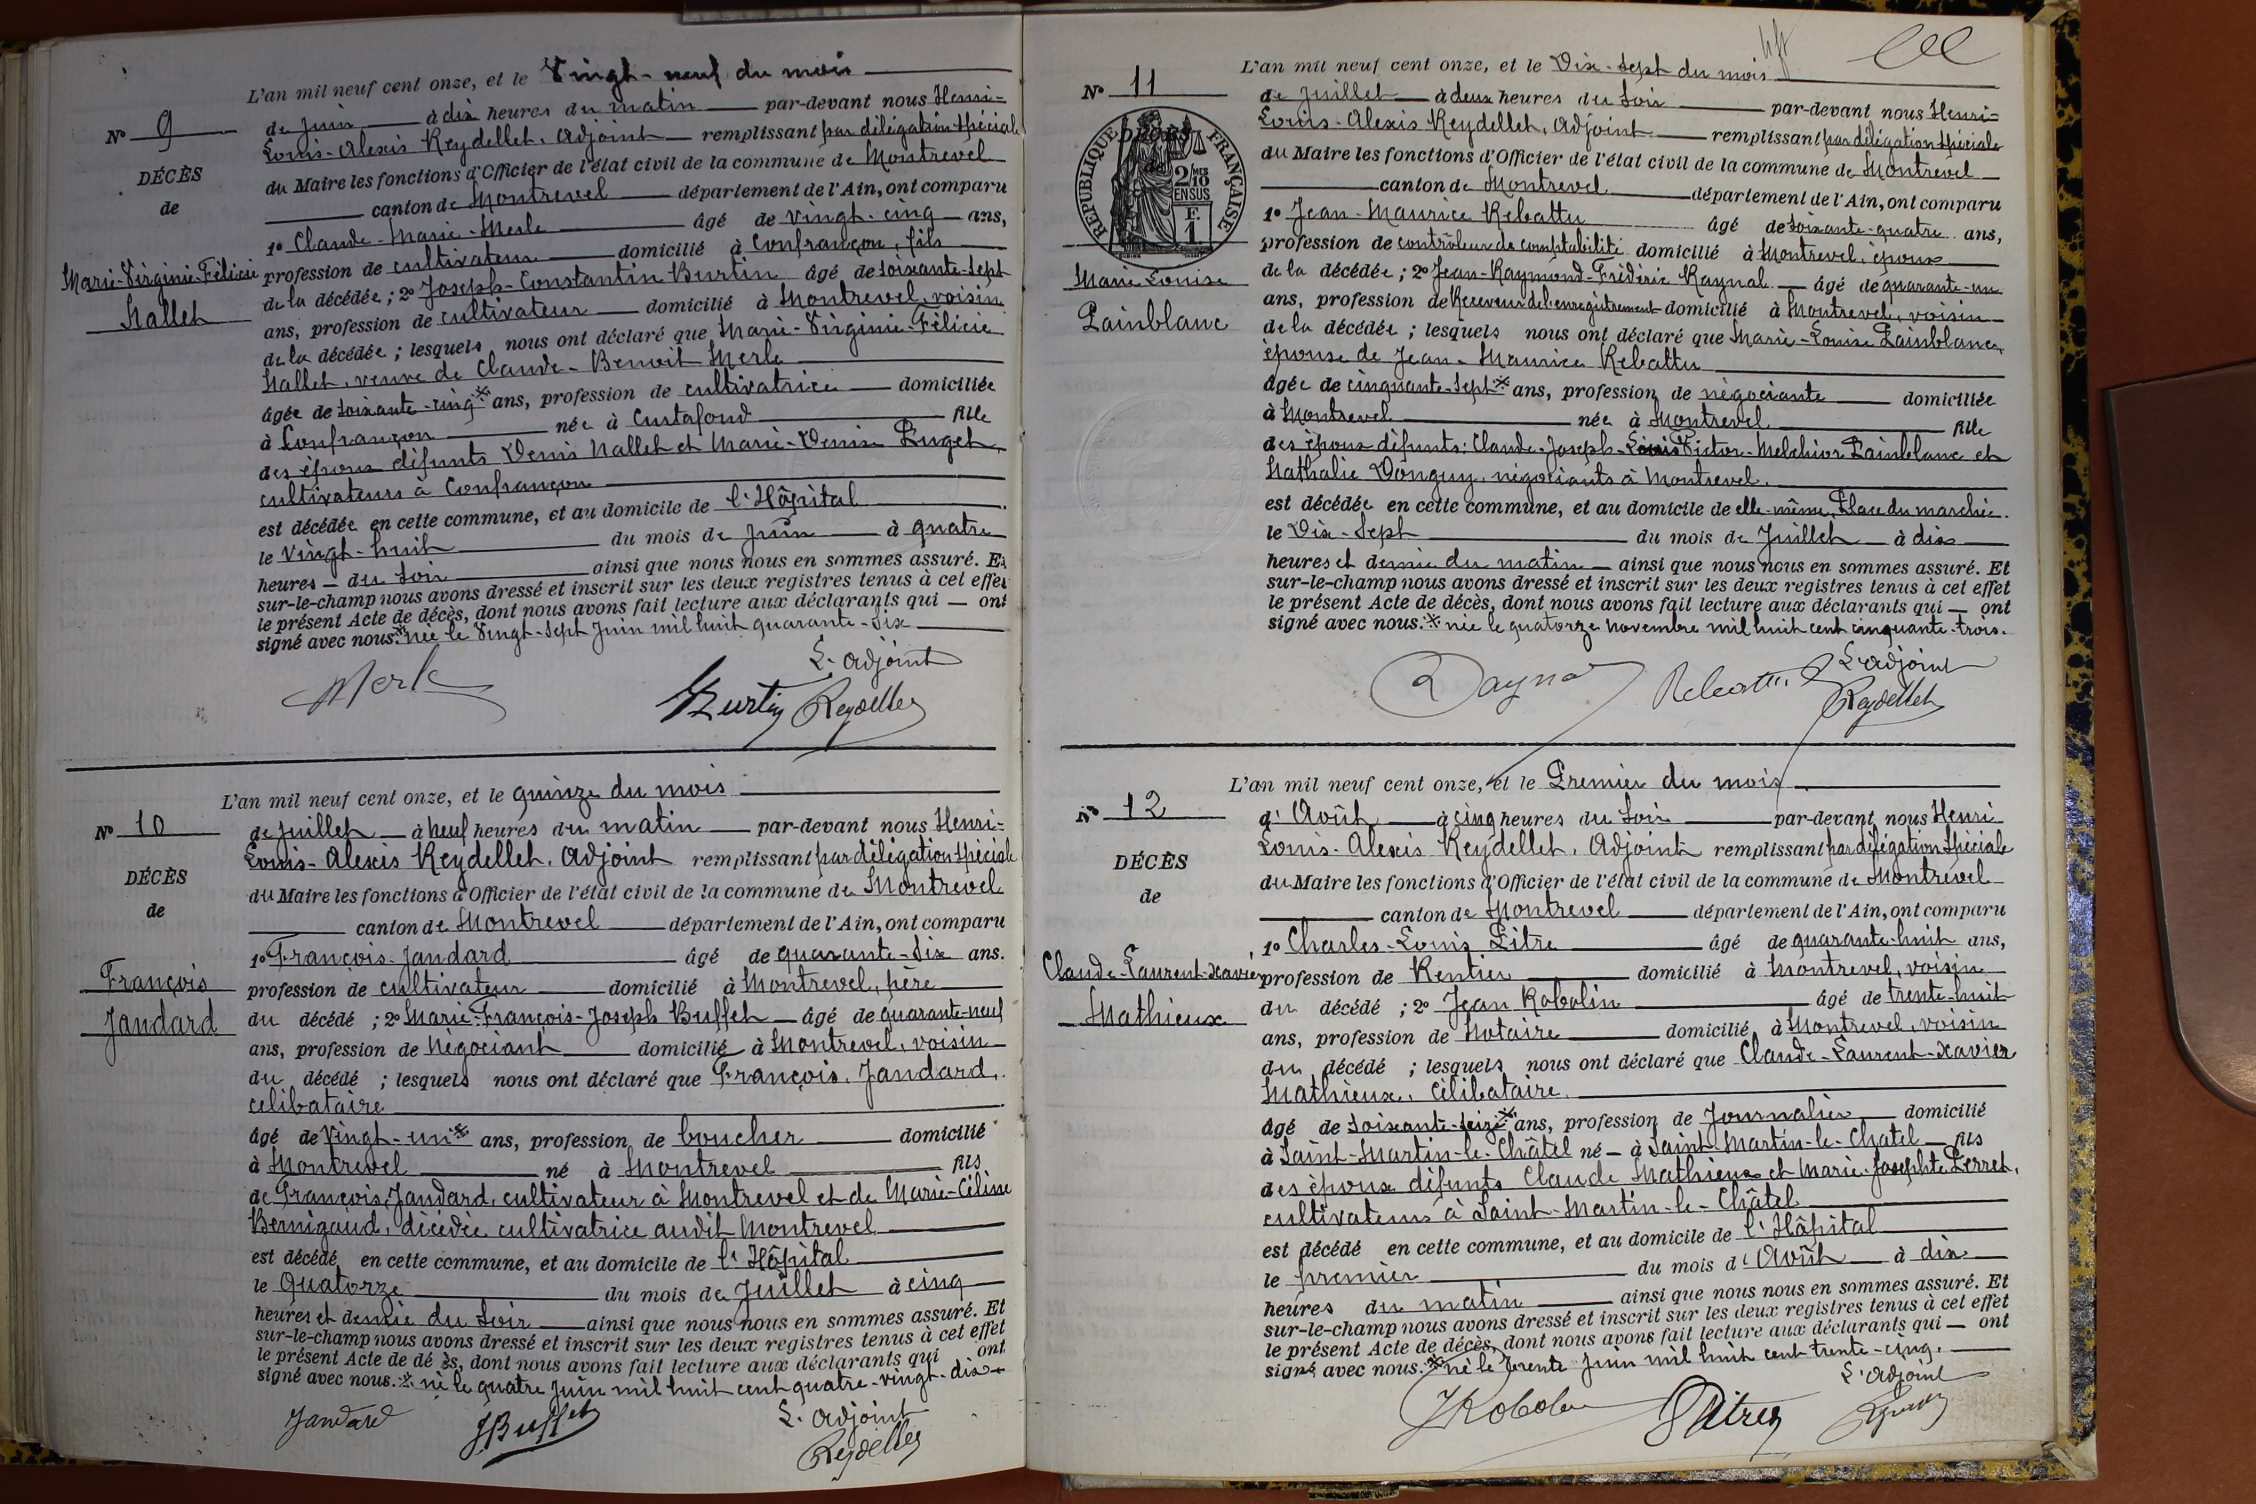 L'an mil neuf cent onze, et le Vingt-neuf du mois
N° 9
de Juin à dix heures du matin par-devant nous Henri-
Louis-Alexis Reydellet, Adjoint remplissant par délégation spéciale
DÉCÈS
du Maire les fonctions d'Officier de l'état civil de la commune de Montrevel
de
canton de Montrevel département de l'Ain, ont comparu
1° Claude-Marie-Merle âgé de vingt-cinq ans,
Marie-Virginie-Félicie
profession de cultivateur domicilié à Confrançon, fils
Nallet
de la décédée ; 2° Joseph-Constantin Burtin âgé de soixante-sept
ans, profession de cultivateur domicilié à Montrevel, voisin
de la décédée ; lesquels nous ont déclaré que Marie-Virginie-Félicie
Nallet, veuve de Claude-Benoit Merle
âgée de soixante-cinq* ans, profession de cultivatrice domiciliée
à Confrançon née à Curtafond fille
des époux défunts Denis Nallet et Marie-Denise Puget,
cultivateurs à Confrançon
est décédée en cette commune, et au domicile de l'Hôpital
le Vingt-huit du mois de Juin à quatre
heures - du soir ainsi que nous nous en sommes assuré. Et
sur-le-champ nous avons dressé et inscrit sur les deux registres tenus à cet effet
le présent Acte de décès, dont nous avons fait lecture aux déclarants qui — ont
signé avec nous.* née le Vingt-sept Juin mil huit quarante-six
L'adjoint
Merle
Burtin Reydellet
L'an mil neuf cent onze, et le quinze du mois
N° 10
de Juillet à neuf heures du matin par-devant nous Henri-
Louis-Alexis Reydellet, Adjoint remplissant par délégation spéciale
DÉCÈS
du Maire les fonctions d'Officier de l'état civil de la commune de Montrevel
de
canton de Montrevel département de l'Ain, ont comparu
1° François-Jandard âgé de quarante-six ans.
François
profession de cultivateur domicilié à Montrevel, père
Jandard
du décédé ; 2° Marie-François-Joseph Buffet âgé de quarante-neuf
ans, profession de Négociant domicilié à Montrevel, voisin
du décédé ; lesquels nous ont déclaré que François Jandard,
célibataire
âgé de Vingt-un* ans, profession de boucher domicilié
à Montrevel né à Montrevel fils
de François Jandard, cultivateur à Montrevel et de Marie-Céline
Bernigaud, décédée cultivatrice audit Montrevel
est décédé en cette commune, et au domicile de l'Hôpital
le Quatorze du mois de Juillet à cinq
heures et demie du soir ainsi que nous nous en sommes assuré. Et
sur-le-champ nous avons dressé et inscrit sur les deux registres tenus à cet effet
le présent Acte de dé ès, dont nous avons fait lecture aux déclarants qui ont
signé avec nous.* né le quatre Juin mil huit cent quatre-vingt-dix
Jandard JBuffet L'adjoint
Reydellet
L'an mil neuf cent onze, et le Dix-Sept du mois
N° 11
de Juillet à deux heures du soir par-devant nous Henri-
Louis-Alexis Reydellet, Adjoint remplissant par délégation spéciale
RÉPUBLIQUE FRANÇAISE
DÉCÈS
de
2/10 MES EN SUS
1 F.
du Maire les fonctions d'Officier de l'état civil de la commune de Montrevel
canton de Montrevel département de l'Ain, ont comparu
1° Jean-Maurice Rebattu âgé de soixante-quatre ans,
profession de contrôleur de comptabilité domicilié à Montrevel, époux
Marie Louise
de la décédée ; 2° Jean-Raymond-Frédéric Raynal âgé de quarante-un
Painblanc
ans, profession de Receveur de l'enregistrement domicilié à Montrevel, voisin
de la décédée ; lesquels nous ont déclaré que Marie-Louise Painblanc,
épouse de Jean-Maurice Rebattu
âgée de cinquante-sept* ans, profession de négociante domiciliée
à Montrevel née à Montrevel fille
des époux défunts: Claude-Joseph-Louis Victor-Melchior Painblanc et
Nathalie Donguy, négociants à Montrevel.
est décédée en cette commune, et au domicile de elle-même, Place du marché.
le Dix-Sept du mois de Juillet à dix
heures et demie du matin ainsi que nous nous en sommes assuré. Et
sur-le-champ nous avons dressé et inscrit sur les deux registres tenus à cet effet
le présent Acte de décès, dont nous avons fait lecture aux déclarants qui — ont
signé avec nous.* née le quatorze novembre mil huit cent cinquante-trois.
L'adjoint
Raynal Rebattu Reydellet
L'an mil neuf cent onze, et le Premier du mois
N° 12
d'Août à cinq heures du soir par-devant nous Henri
Louis-Alexis Reydellet, Adjoint remplissant par délégation spéciale
DÉCÈS
du Maire les fonctions d'Officier de l'état civil de la commune de Montrevel
de
canton de Montrevel département de l'Ain, ont comparu
1° Charles-Louis Pitre âgé de quarante-huit ans,
Claude-Laurent-Xavier
profession de Rentier domicilié à Montrevel, voisin
Mathieux
du décédé ; 2° Jean Robolin âgé de trente-huit
ans, profession de Notaire domicilié à Montrevel, voisin
du décédé ; lesquels nous ont déclaré que Claude-Laurent-Xavier
Mathieux, célibataire
âgé de soixante-seize* ans, profession de Journalier domicilié
à Saint-Martin-le-Châtel né - à Saint-Martin-le-Chatel fils
des époux défunts Claude Mathieux et Marie-Josephte Perret,
cultivateurs à Saint-Martin-le-Châtel
est décédé en cette commune, et au domicile de l'Hôpital
le premier du mois d'Août à dix
heures du matin ainsi que nous nous en sommes assuré. Et
sur-le-champ nous avons dressé et inscrit sur les deux registres tenus à cet effet
le présent Acte de décès, dont nous avons fait lecture aux déclarants qui — ont
signé avec nous.* né le Trente Juin mil huit cent trente-cinq.
L'adjoint
JRobolin Pitre